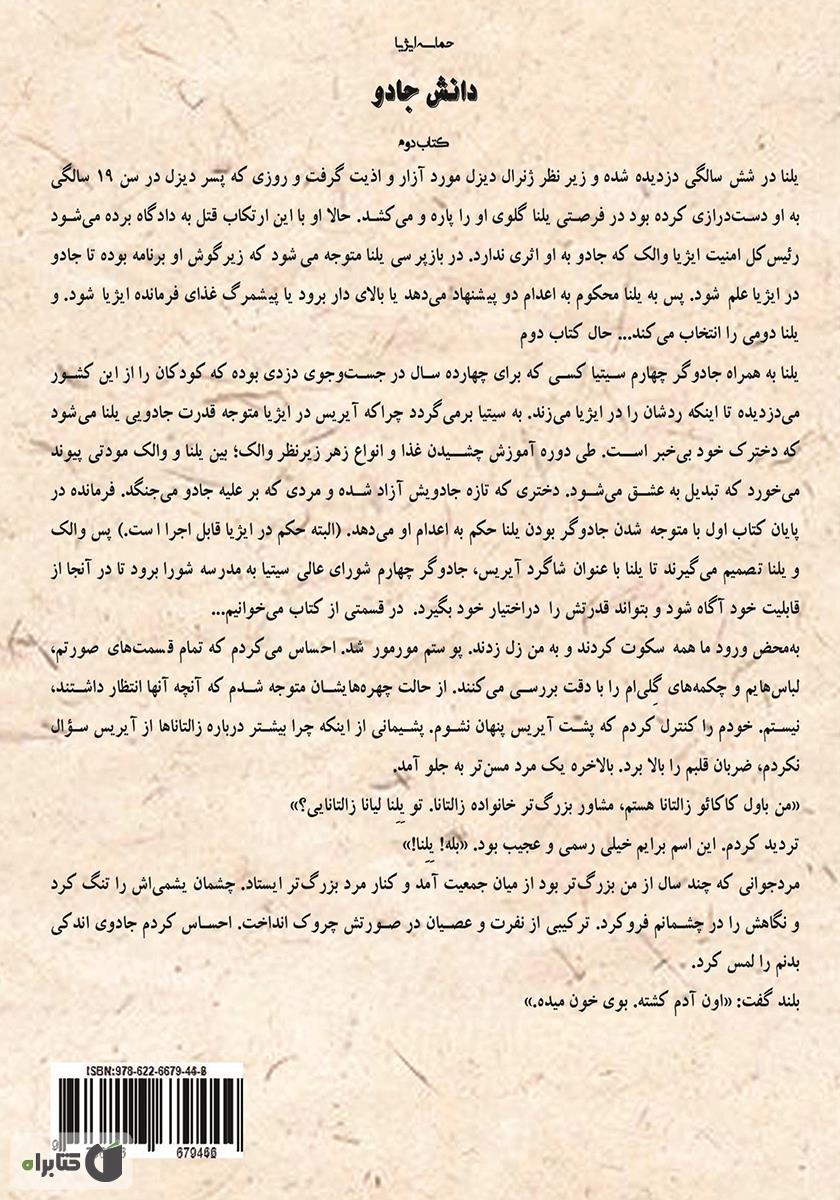 حماسه ایژیا
دانش جادو
کتاب دوم
یلنا در شش سالگی دزدیده شده و زیر نظر ژنرال دیزل مورد آزار و اذیت گرفت و روزی که پسر دیزل در سن ۱۹ سالگی
به او دست‌درازی کرده بود در فرصتی یلنا گلوی او را پاره و می‌کشد. حالا او با این ارتکاب قتل به دادگاه برده می‌شود
رئیس‌کل امنیت ایژیا والک که جادو به او اثری ندارد. در بازپرسی یلنا متوجه می شود که زیرگوش او برنامه بوده تا جادو
در ایژیا علم شود. پس به یلنا محکوم به اعدام دو پیشنهاد می‌دهد یا بالای دار برود یا پیشمرگ غذای فرمانده ایژیا شود. و
یلنا دومی را انتخاب می‌کند... حال کتاب دوم
یلنا به همراه جادوگر چهارم سیتیا کسی که برای چهارده سال در جست‌وجوی دزدی بوده که کودکان را از این کشور
می‌دزدیده تا اینکه ردشان را در ایژیا می‌زند. به سیتیا برمی‌گردد چراکه آیریس در ایژیا متوجه قدرت جادویی یلنا می‌شود
که دخترک خود بی‌خبر است. طی دوره آموزش چشیدن غذا و انواع زهر زیرنظر والک؛ بین یلنا و والک مودتی پیوند
می‌خورد که تبدیل به عشق می‌شود. دختری که تازه جادویش آزاد شده و مردی که بر علیه جادو می‌جنگد. فرمانده در
پایان کتاب اول با متوجه شدن جادوگر بودن یلنا حکم به اعدام او می‌دهد. (البته حکم در ایژیا قابل اجرا است.) پس والک
و یلنا تصمیم می‌گیرند تا یلنا با عنوان شاگرد آیریس، جادوگر چهارم شورای عالی سیتیا به مدرسه شورا برود تا در آنجا از
قابلیت خود آگاه شود و بتواند قدرتش را دراختیار خود بگیرد. در قسمتی از کتاب می‌خوانیم...
به‌محض ورود ما همه سکوت کردند و به من زل زدند. پوستم مورمور شد. احساس می‌کردم که تمام قسمت‌های صورتم،
لباس‌هایم و چکمه‌های گِلی‌ام را با دقت بررسی می‌کنند. از حالت چهره‌هایشان متوجه شدم که آنچه آنها انتظار داشتند،
نیستم. خودم را کنترل کردم که پشت آیریس پنهان نشوم. پشیمانی از اینکه چرا بیشتر درباره زالتاناها از آیریس سؤال
نکردم، ضربان قلبم را بالا برد. بالاخره یک مرد مسن‌تر به جلو آمد.
«من باول کاکائو زالتانا هستم، مشاور بزرگ‌تر خانواده زالتانا. تو یِلِنا لیانا زالتانایی؟»
تردید کردم. این اسم برایم خیلی رسمی و عجیب بود. «بله! یِلِنا!»
مردجوانی که چند سال از من بزرگ‌تر بود از میان جمعیت آمد و کنار مرد بزرگ‌تر ایستاد. چشمان یشمی‌اش را تنگ کرد
و نگاهش را در چشمانم فروکرد. ترکیبی از نفرت و عصیان در صورتش چروک انداخت. احساس کردم جادوی اندکی
بدنم را لمس کرد.
بلند گفت: «اون آدم کشته. بوی خون میده.»
ISBN:978-622-6679-44-
679466
کتابراه